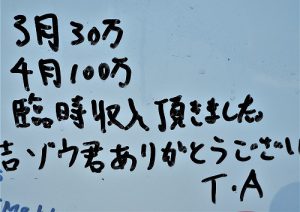 3月30万
4月100万
臨時収入頂きました。
吉ゾウ君ありがとうござい
T・A